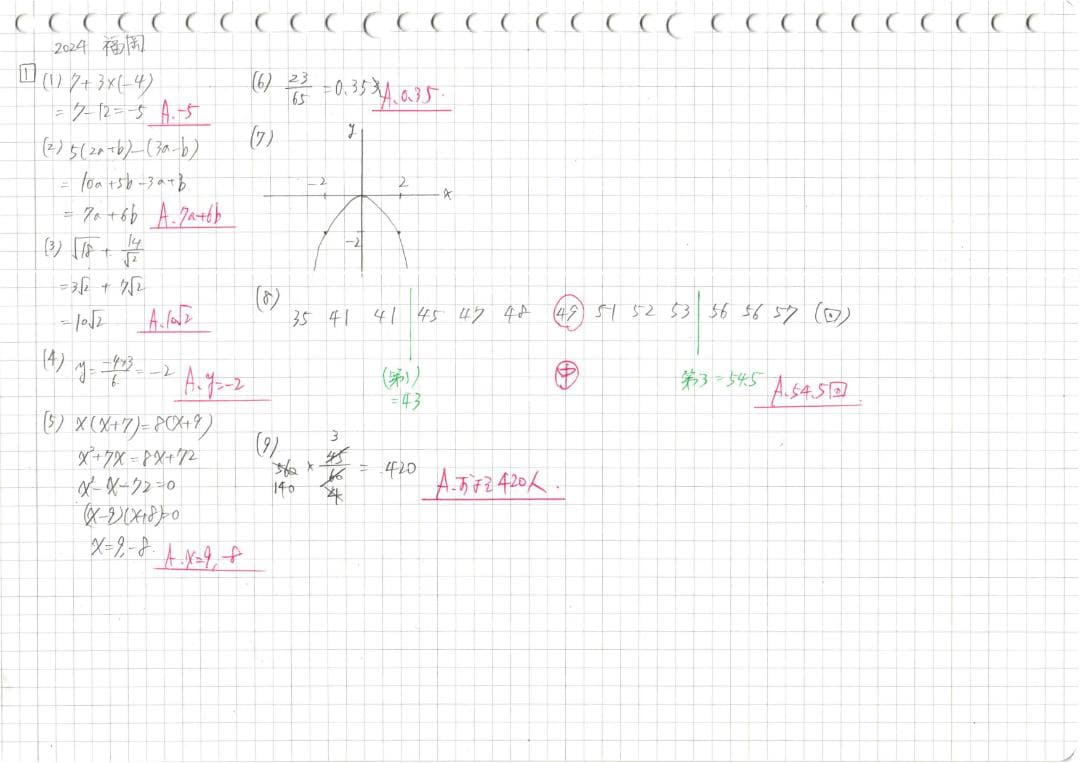 2024 福岡
1
(1) 7+3×(-4)
= 7-12=-5 A.-5
(2) 5(2a+b)-(3a-b)
= 10a+5b-3a+b
= 7a+6b A.7a+6b
(3) √18 + 14/√2
=3√2 + 7√2
=10√2 A.10√2
(4) y= -4×3/6 = -2 A.y=-2
(5) x(x+7)=8(x+9)
x²+7x=8x+72
x²-x-72=0
(x-9)(x+8)=0
x=9,-8. A.x=9,-8
(6) 23/65 =0.353 A.0.35.
(7)
y
-2 2 x
-2
(8)
35 41 41 45 47 48 49 51 52 53 56 56 57 (回)
(第1) 中 第3=54.5 A.54.5回
=43
(9)
3
560 × 45/60 = 420 A.およそ420人.
140 4